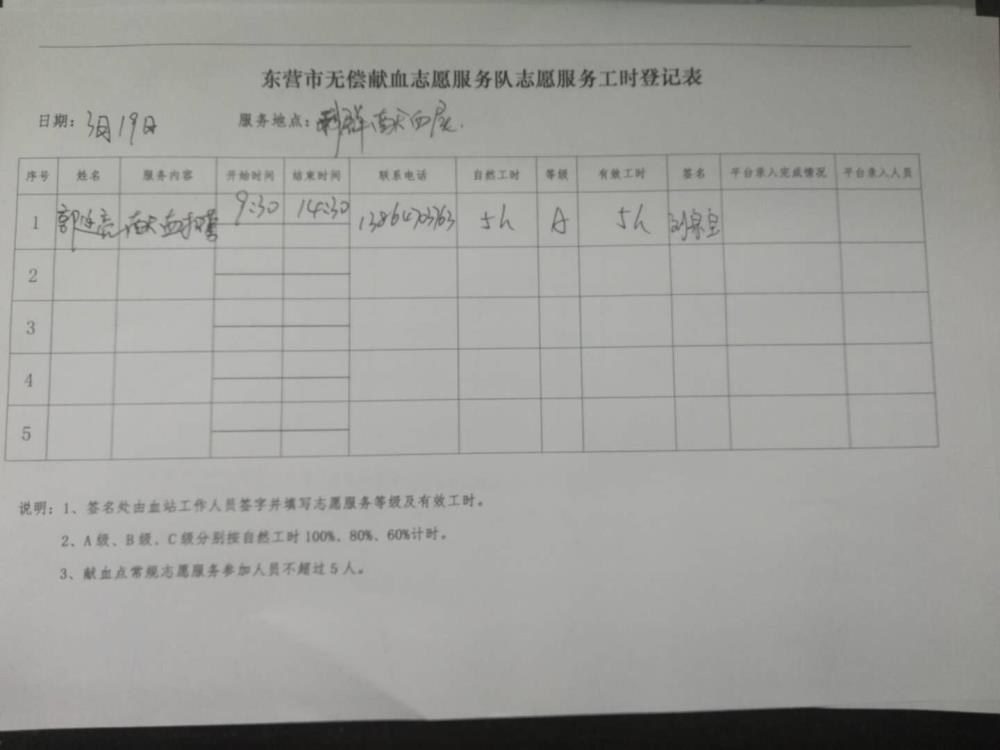 东营市无偿献血志愿服务队志愿服务工时登记表
日期：3月19日 服务地点：献血屋
序号 姓名 服务内容 开始时间 结束时间 联系电话 自然工时 等级 有效工时 签名 平台录入完成情况 平台录入人员
1 献血 9:30 14:30 13864703763 5h A 5h
2
3
4
5
说明：1、签名处由血站工作人员签字并填写志愿服务等级及有效工时。
2、A级、B级、C级分别按自然工时100%、80%、60%计时。
3、献血点常规志愿服务参加人员不超过5人。